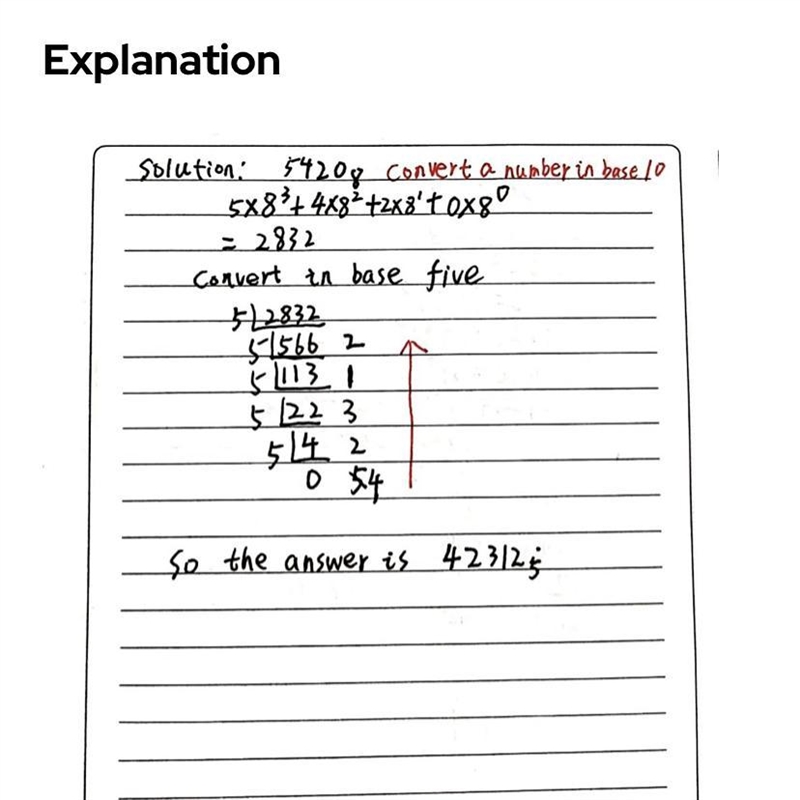 Explanation
Solution: 5420₈ Convert a number in base 10
5×8³+4×8²+2×8¹+0×8⁰
= 2832
Convert in base five
5|2832
5|566 2
5|113 1
5|22 3
5|4 2
0 4
So the answer is 42312₅